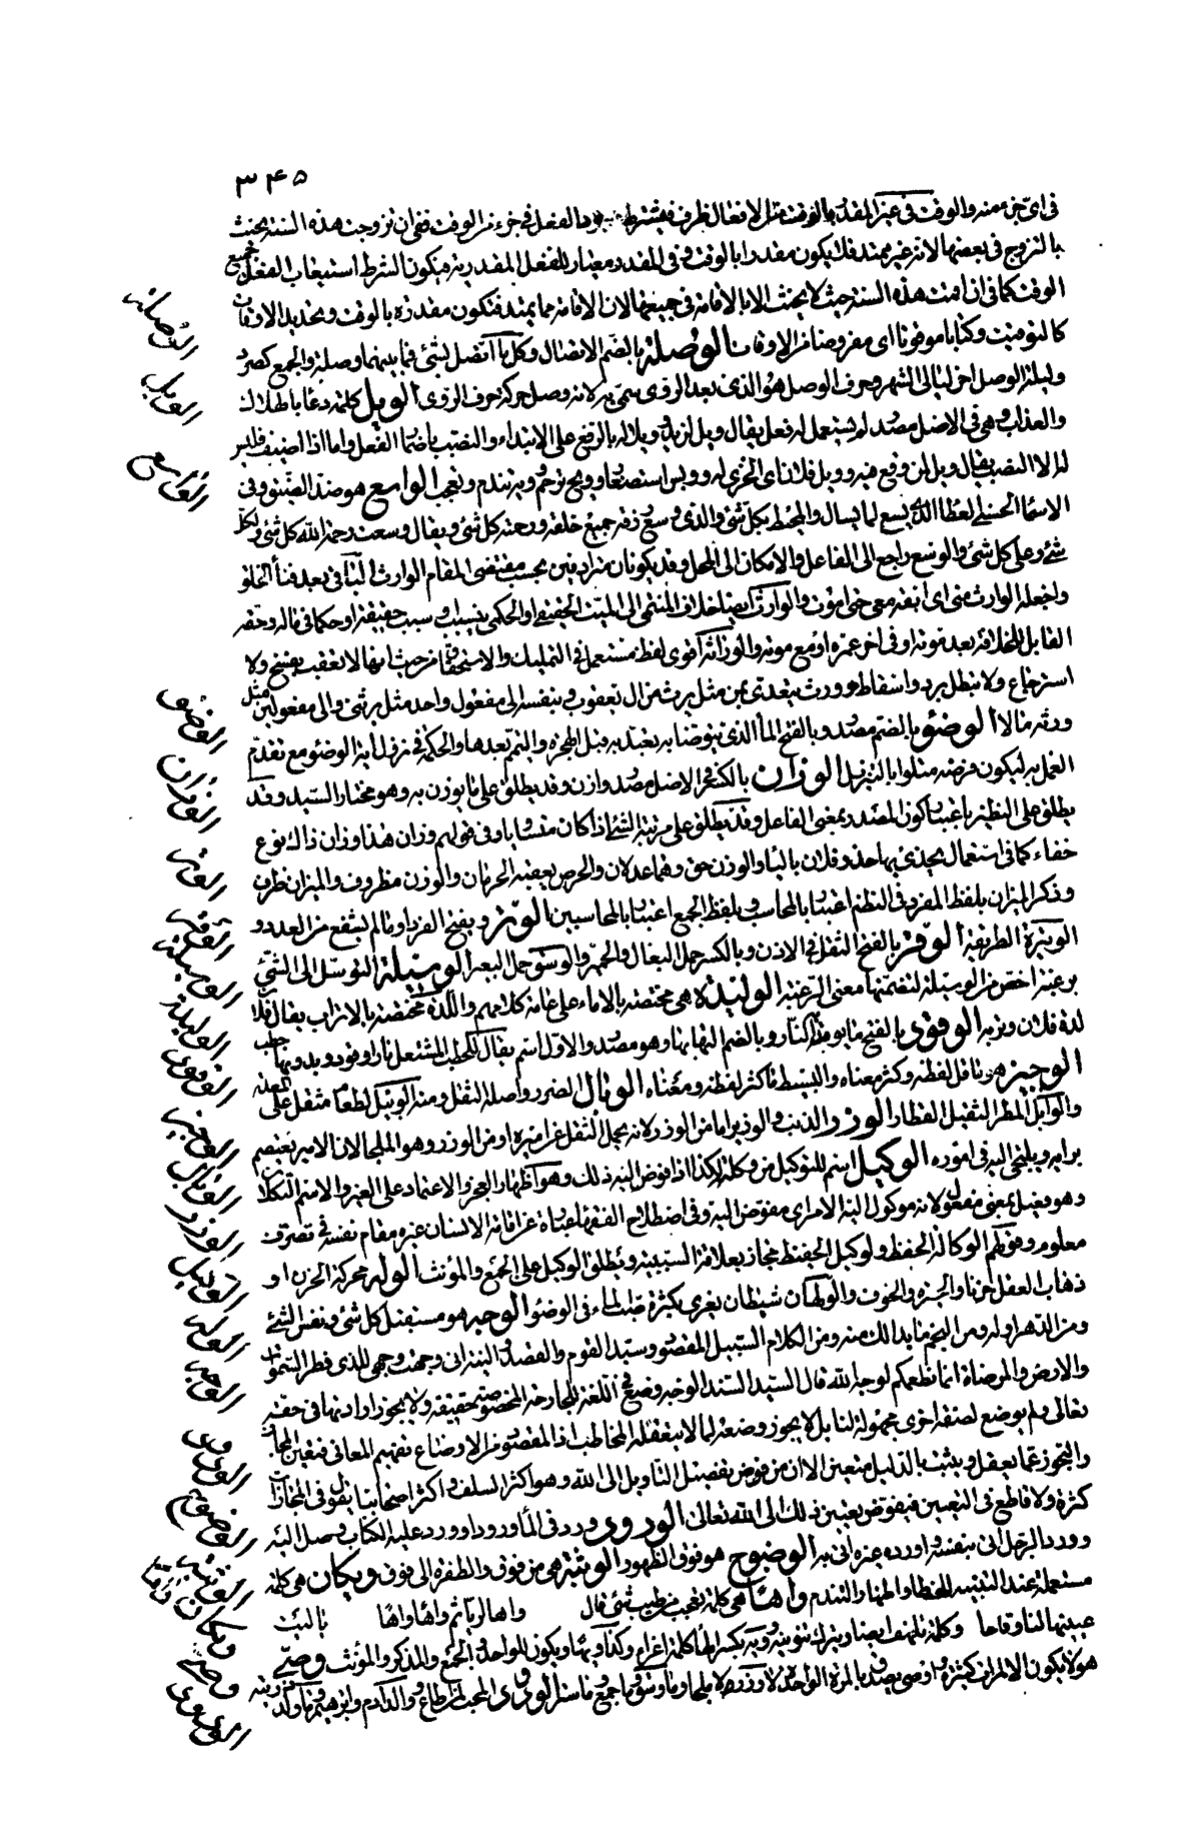 ٣٤٥
في اي جزء منه والوقت في غير المقدر بالوقت من الافعال ظرف فيشترط وجود الفعل في جزء من الوقت ففي ان تزوجت هذه السنة يحنث
بالتزوج في بعضها لانه غير ممتد فلا يكون مقدرا بالوقت وفي المقدر معيار للفعل المقدر به فيكون الشرط استيعاب الفعل جميع
الوقت كما في ان اقمت هذه السنة حيث لا يحنث الا بالاقامة في جميعها لان الاقامة مما يمتد فتكون مقدرة بالوقت وتحديد الاوقات
كالتوقيت وكتابا موقوتا اي مفروضا في الاوقات الوصلة بالضم الاتصال وكل ما اتصل بشئ فما بينهما وصلة والجمع كصرد
وليلة الوصل اخر ليالي الشهر وحرف الوصل هو الذي بعد الروي سمي به لانه وصل حركة حرف الروي الويل كلمة دعا بالهلاك
والعذاب وهي في الاصل مصدر لم يستعمل له فعل يقال ويل لزيد وويلا له بالرفع على الابتداء والنصب باضمار الفعل واما اذا اضيف فليس
له الا النصب يقال ويل لمن وقع فيه وويل فلان اي الخزي له وويس استصغار وويح ترحم وويه تندم وتعجب الواسع هو ضد الضيق وفي
الاسماء الحسنى المعطاء الذي يسع لما يسأل والمحيط بكل شئ والذي وسع رزقه جميع خلقه ورحمته كل شئ ويقال وسعت رحمة الله كل شئ ولكل
شئ وعلى كل شئ والوسع راجع الى الفاعل والامكان الى المحل وقد يكونان مترادفين بحسب مقتضى المقام الوارث الباقي بعد فناء الخلق
واجعله الوارث مني اي ابقه معي حتى اموت والوارث ايضا خلاف المنتمي الى الميت الحقيقي او الحكمي بنسب او سبب حقيقة او حكما في ماله وحقه
القابل للخلافة بعد موته او في اخر عمره او مع موته والوراثة اقوى لفظ مستعمل في التمليك والاستحقاق من حيث انها لا تعقب بفسخ ولا
استرجاع ولا تبطل برد واسقاط وورث يتعدى بمن مثل يرث من ال يعقوب وبنفسه الى مفعول واحد مثل يرثني والى مفعولين مثل
ورثه مالا الوضوء بالضم مصدر وبالفتح الماء الذي يتوضأ به تعبد به قبل الهجرة والتيمم بعدها والحكمة في نزول اية الوضوء مع تقدم
العمل به ليكون فرضه متلوا بالتنزيل الوزان بالكسر في الاصل مصدر وازن وقد يطلق على ما يوزن به وهو مختار السيد وقد
يطلق على النظير باعتبار كون المصدر بمعنى الفاعل وقد يطلق على مرتبة الشئ اذا كان متساويا وفي قولهم وزان هذا وزان ذاك نوع
خفاء كما في استعمال يحذى بها حذو فلان بالباء والوزن حق وهما عدلان والحرص يعقبه الحرمان والوزن مظروف والميزان ظرف
وذكر الميزان بلفظ المفرد في النظم اعتبارا بالمحاسب وبلفظ الجمع اعتبارا بالمحاسبين الوتر وبفتح الفرد او ما لم يشفع من العدد و
الوتيرة الطريقة الوقر بالفتح الثقل في الاذن وبالكسر حمل البغال والحمر والوسق حمل البعير الوسيلة التوسل الى الشئ
برغبة اخص من الوصيلة لتضمنها معنى الرغبة الوليدة هي مختصة بالاماء على عامة كلامهم واللدة مختصة بالاتراب يقال فلان
لدة فلان وتربه الوقود بالفتح ما يوقد به النار وبالضم التهابها وهو مصدر والاول اسم يقال للحطب المشتعل نارا وقود وبدونها حطب
الوجيز هو ما قل لفظه وكثر معناه والبسيط ما كثر لفظه ومعناه الوبال الضرر واصله الثقل ومنه الوبيل لطعام يثقل على المعدة
والوابل المطر الثقيل القطار الوزر الذنب والوزير اما من الوزر لانه يحمل الثقل عن اميره او من الوزر وهو الملجأ لان الامير يعتصم
برايه ويلتجي اليه في اموره الوكيل اسم للتوكيل من وكلته بكذا اذا فوض اليه ذلك وهو اظهار العجز والاعتماد على الغير والاسم التكلان
وهو فعيل بمعنى مفعول لانه موكول اليه الامر اي مفوض اليه وفي اصطلاح الفقهاء عبارة عن اقامة الانسان غيره مقام نفسه في تصرف
معلوم وقولهم الوكالة الحفظ والوكيل الحفيظ مجاز بعلاقة السببية ويطلق الوكيل على الجمع والمؤنث الوله محركة الحزن او
ذهاب العقل حزنا والحيرة والخوف والولهان شيطان يغري بكثرة صب الماء في الوضوء الوجه هو مستقبل كل شئ ونفس الشئ
ومن الدهر اوله ومن النجم ما بدا لك منه ومن الكلام السبيل المقصود وسيد القوم والقصد والنية اني وجهت وجهي للذي فطر السموات
والارض والمرضاة انما نطعمكم لوجه الله قال السيد السند الوجه وضع في اللغة للجارحة المخصوصة حقيقة ولا يجوز ارادتها في حقه
تعالى ولم يوضع لصفة اخرى مجهولة لنا بل لا يجوز وضعه لما لا يتعقله المخاطب اذ المقصود من الاوضاع تفهيم المعاني فتعين المجاز
والتجوز عما يعقل ويثبت بالدليل متعين الا ان من فوض تفصيل التاويل الى الله وهو اكثر السلف واكثر اصحابنا يقول في المجازات
كثرة ولا قاطع في التعيين فيفوض تعيين ذلك الى الله تعالى الورود ورد في الماء ورودا وورد عليه الكتاب وصل اليه
وورد الرجل اتى بنفسه واورده غيره اتى به الوضوح هو فوق الظهور الوثبة هي من فوق والطفرة الى فوق ويكان هي كلمة
مستعملة عند التنبيه للخطا واظهار التندم واها هي كلمة تعجب من طيب شئ قال واها لريا ثم واها واها يا ليت
عينيها لنا وفاها وكلمة تلهف ايضا ويترك تنوينه وويه بكسر الهاء كلمة اغراء وكذا ويها ويكون للواحد والجمع والمذكر والمؤنث وصى
هو لا يكون الا لمرات كثيرة واوصى يصدق بالمرة الواحدة
الوصلة
الويل
الواسع
الوضوء
الوزان
الوتر
الوقر
الوسيلة
الوليدة
الوقود
الوجيز
الوبال
الوزر
الوكيل
الوله
الوجه
الورود
الوضوح
الوثبة
ويكان واها
وصى